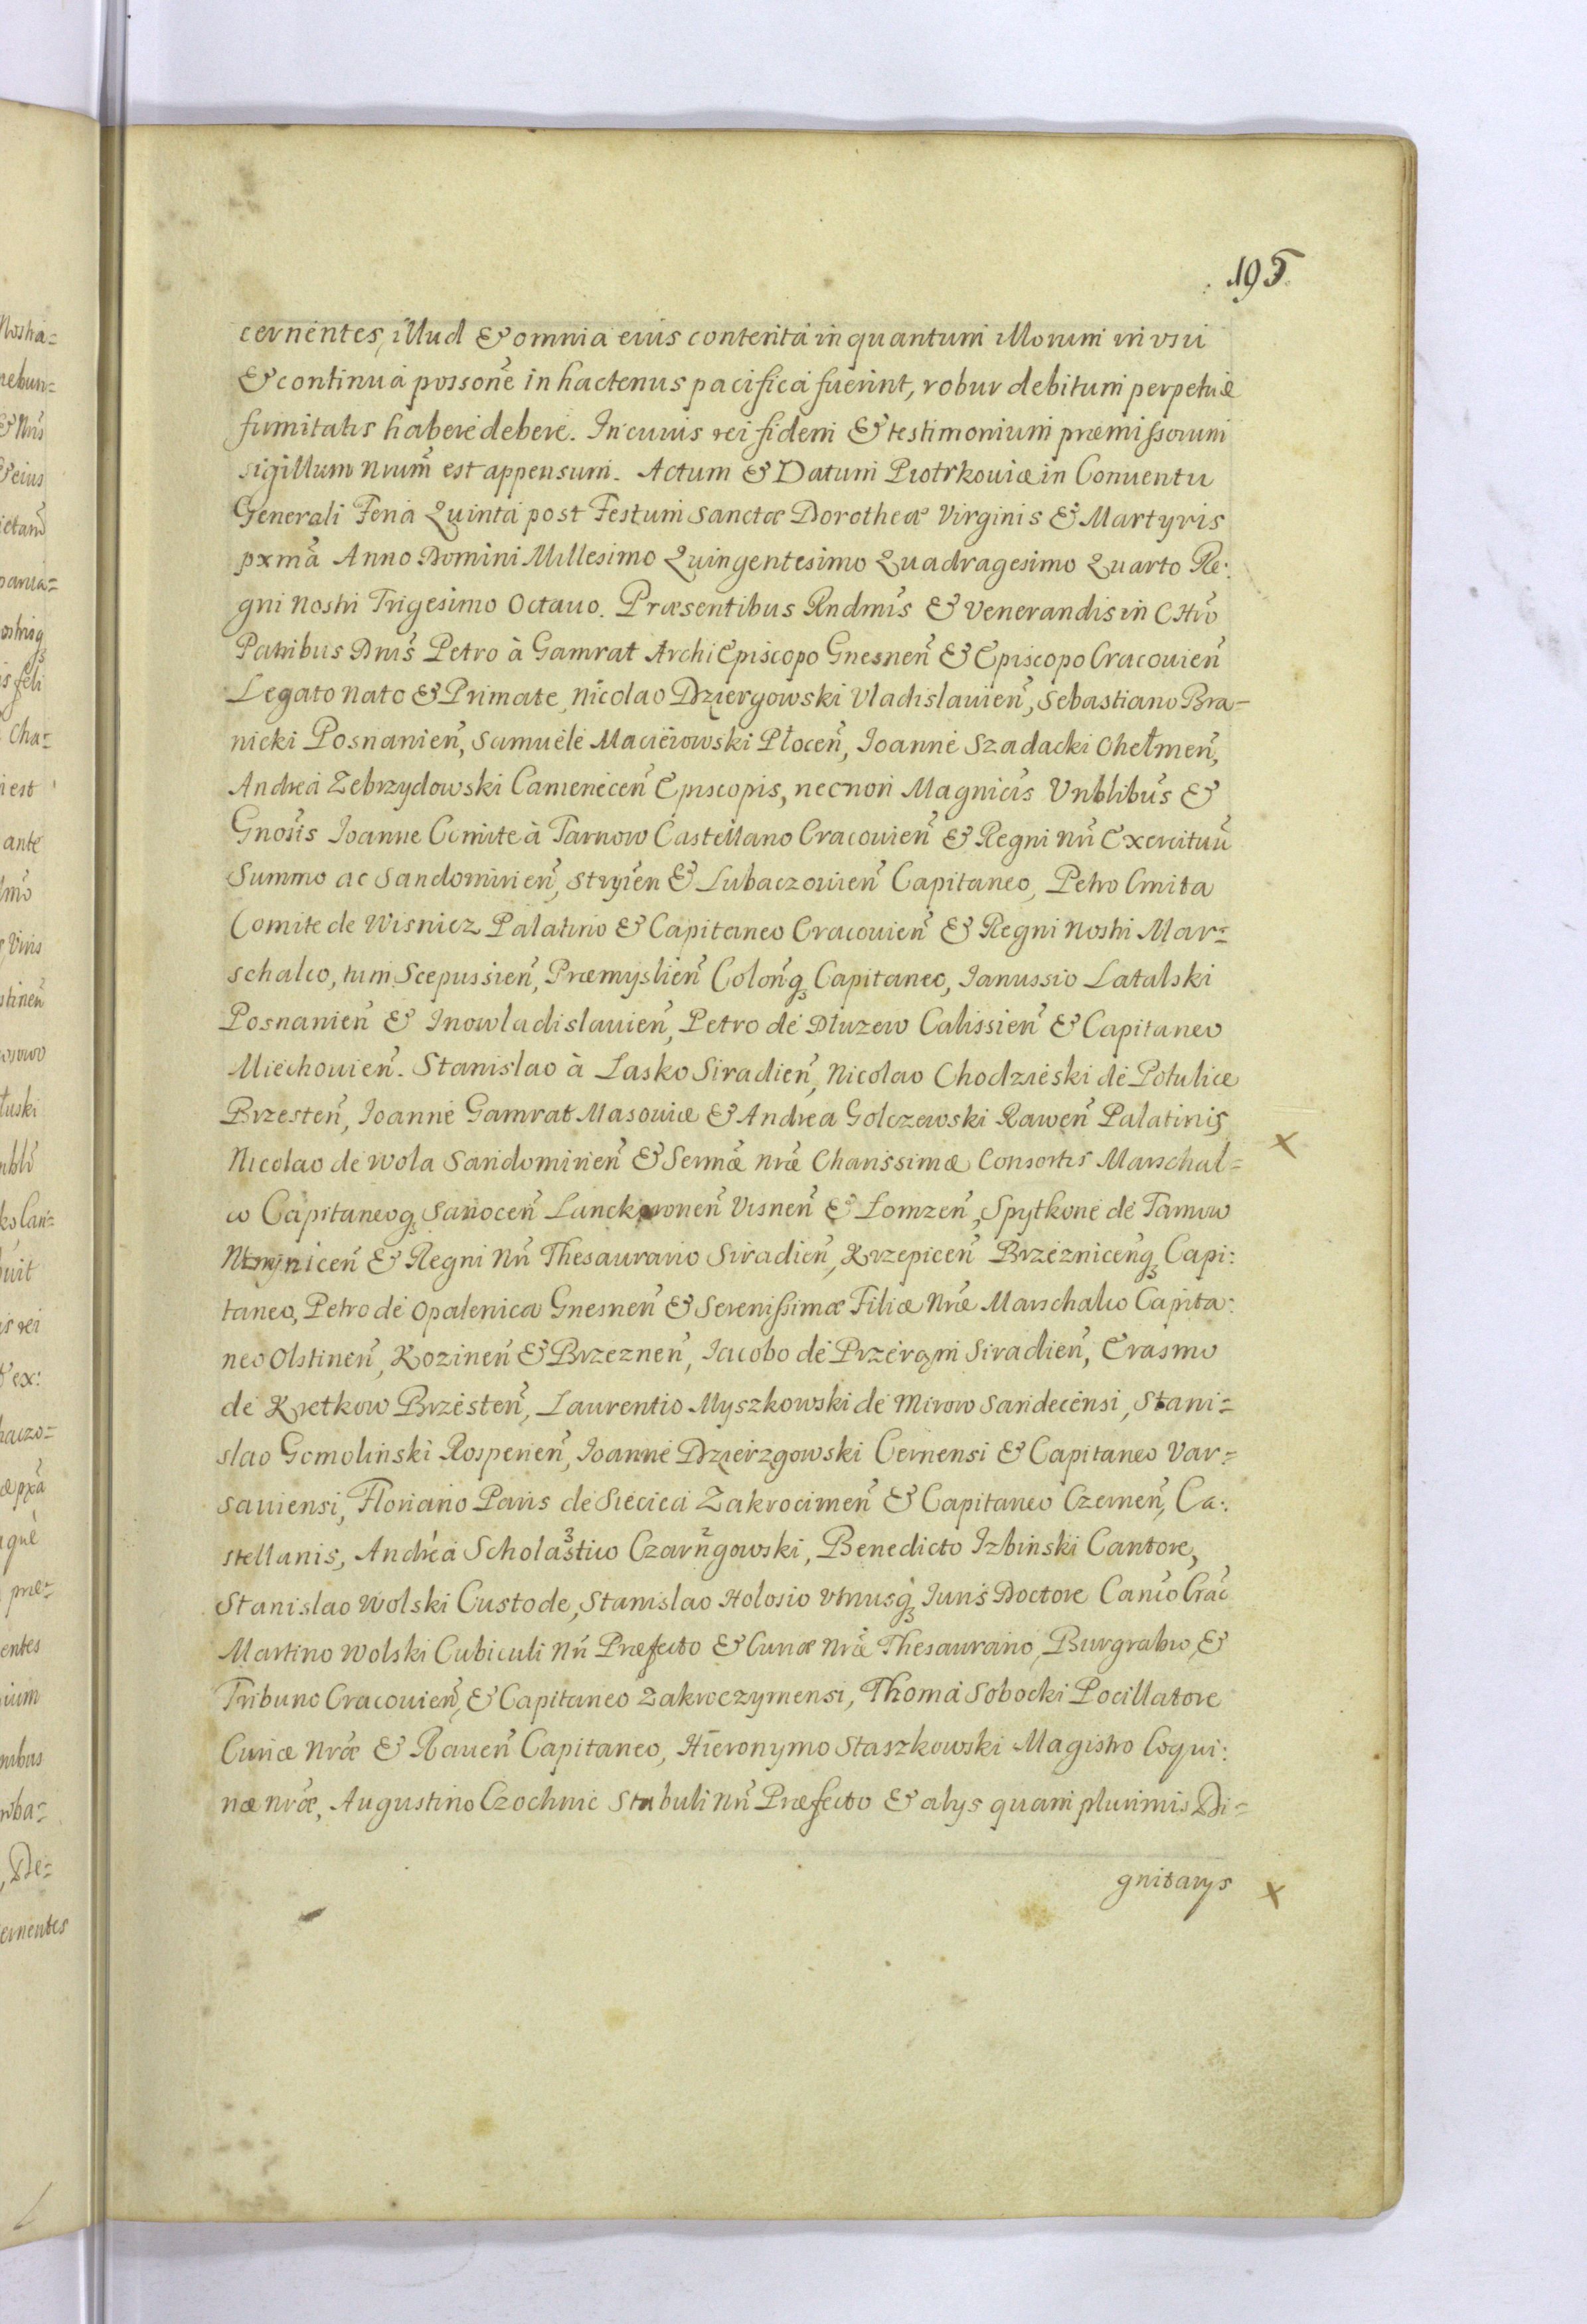 195.
cernentes, illud & omnia eius contenta in quantum illorum in vsu
& continua possone in hactenus pacifica fuerint, robur debitum perpetuæ
firmitatis habere debere. In cuius rei fidem & testimonium præmissorum
sigillum nrum̃ est appensum. Actum & Datum Piotrkouiæ in Conuentu
Generali Feria Quinta post Festum Sanctæ Dorotheæ Virginis & Martyris
pxmã Anno Domini Millesimo Quingentesimo Quadragesimo Quarto Re:
gni Nostri Trigesimo Octauo. Præsentibus Rndmis̃ & Venerandis in CHro
Patribus Dnis̃ Petro à Gamrat ArchiEpiscopo Gnesneñ & Episcopo Cracouieñ
Legato nato & Primate, Nicolao Dziergowski Vladislauieñ, Sebastiano Bra-
nicki Posnanieñ, Samuele Macieiowski Płoceñ, Ioanne Szadacki Chełmeñ,
Andrea Zebrzydowski Cameneceñ Episcopis, necnon Magnicis Vnblibus̃ &
Gnosis̃ Ioanne Comite à Tarnow Castellano Cracouieñ & Regni Nri̅ Exercituũ
Summo ac Sandomirieñ, Stryieñ & Lubaczouieñ Capitaneo, Petro Cmita
Comite de Wisnicz Palatino & Capitaneo Cracouieñ & Regni Nostri Mar=
schalco, tum Scepussieñ, Præmyslieñ Coloñq Capitaneo, Ianussio Latalski
Posnanieñ & Inowladislauieñ, Petro de Dłuzew Calissieñ & Capitaneo
Miechouieñ. Stanislao à Lasko Siradieñ, Nicolao Chodzieski de Potulice
Brzesteñ, Ioanne Gamrat Masouiæ & Andrea Golczewski Raweñ Palatinis
Nicolao de Wola Sandomirieñ & Sermæ̃ nræ̃ Charissimæ Consortis Marschal=
co Capitaneoq Sanoceñ Lanckoroneñ Visneñ & Lomzeñ, Spytkone de Tarnow
& Regni Nri̅ Thesaurario Siradieñ, Krzepiceñ Brzezniceñq Capi:
taneo, Petro de Opalenica Gnesneñ & Serenissimæ Filiæ Nræ̃ Marschalco Capita:
neo Olstineñ, Kozineñ & Brzezneñ, Iacobo de Przerąm Siradieñ, Erasmo
de Kretkow Brzesteñ, Laurentio Myszkowski de Mirow Sandecensi, Stani=
slao Gomolinski Rosperieñ, Ioanne Dzierzgowski Cernensi & Capitaneo Var=
sauiensi, Floriano Paris de Siecica Zakrocimeñ & Capitaneo Czerneñ, Ca:
stellanis, Andrea Scholastico Czarñgowski, Benedicto Izbinski Cantore,
Stanislao Wolski Custode, Stanislao Holosio Vtriusq Iuris̃ Doctore Canco̅ Crac̃
Martino Wolski Cubiculi Nri̅ Præfecto & Curiæ Nræ̃ Thesaurario, Burgrabio, &
Tribuno Cracouieñ, & Capitaneo Zakroczymensi, Thoma Sobocki Pocillatore
Curiæ Nræ̃ & Raueñ Capitaneo, Hieronymo Staszkowski Magistro Coqui:
næ nræ̃, Augustino Czochmic Stabuli Nri̅ Præfecto & alys quam plurimis Di=
gnitarys